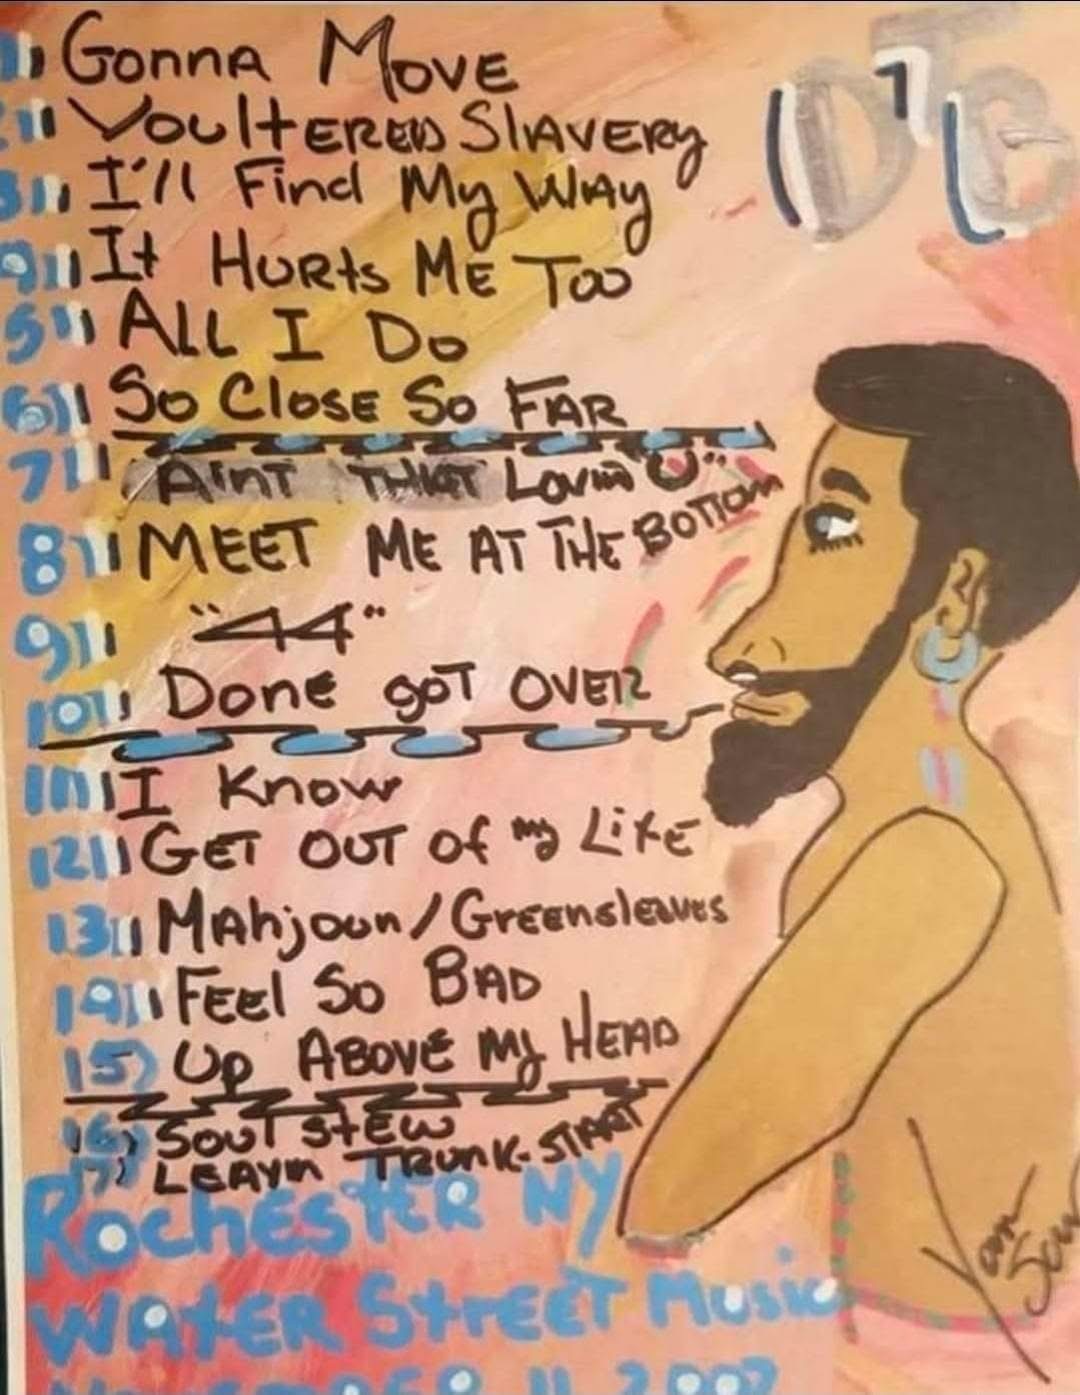 1) GONNA MOVE
DTG
VOUlTERED SlAVERY
3) I'll Find My WAY
It HURts ME Too
5) ALL I Do
6) So Close So FAR
7) AinT THAT Lovin "U"
8) MEET ME AT THE BOTTOM
9) "44"
10) Done goT OVER
11) I Know
12) GET OUT Of my LifE
13) MAhjoun/GreenSleaves
14) FEEl So BAD
15) Up ABOVE My HEAD
16) Soul StEW
17) LEAVin TRUNK-START
RochEStER NY
WAtER StREET Music
11 2007